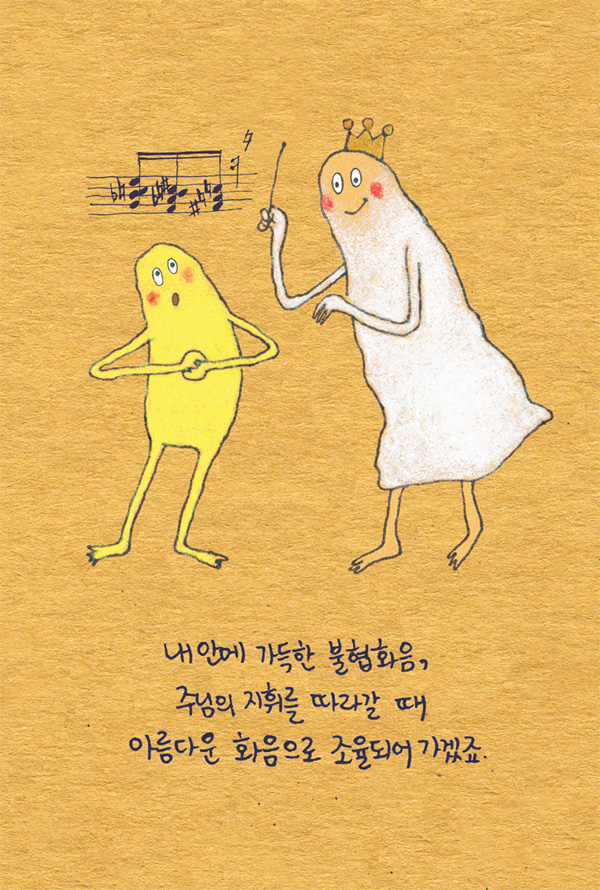 내 안에 가득한 불협화음,
주님의 지휘를 따라갈 때
아름다운 화음으로 조율되어 가겠죠.